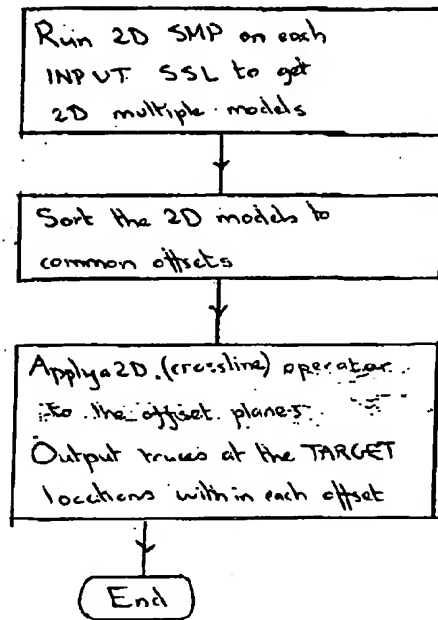 Run 2D SMP on each
INPUT SSL to get
2D multiple models
Sort the 2D models to
common offsets
Apply a 2D (crossline) operator
to the offset planes
Output traces at the TARGET
locations within each offset
End